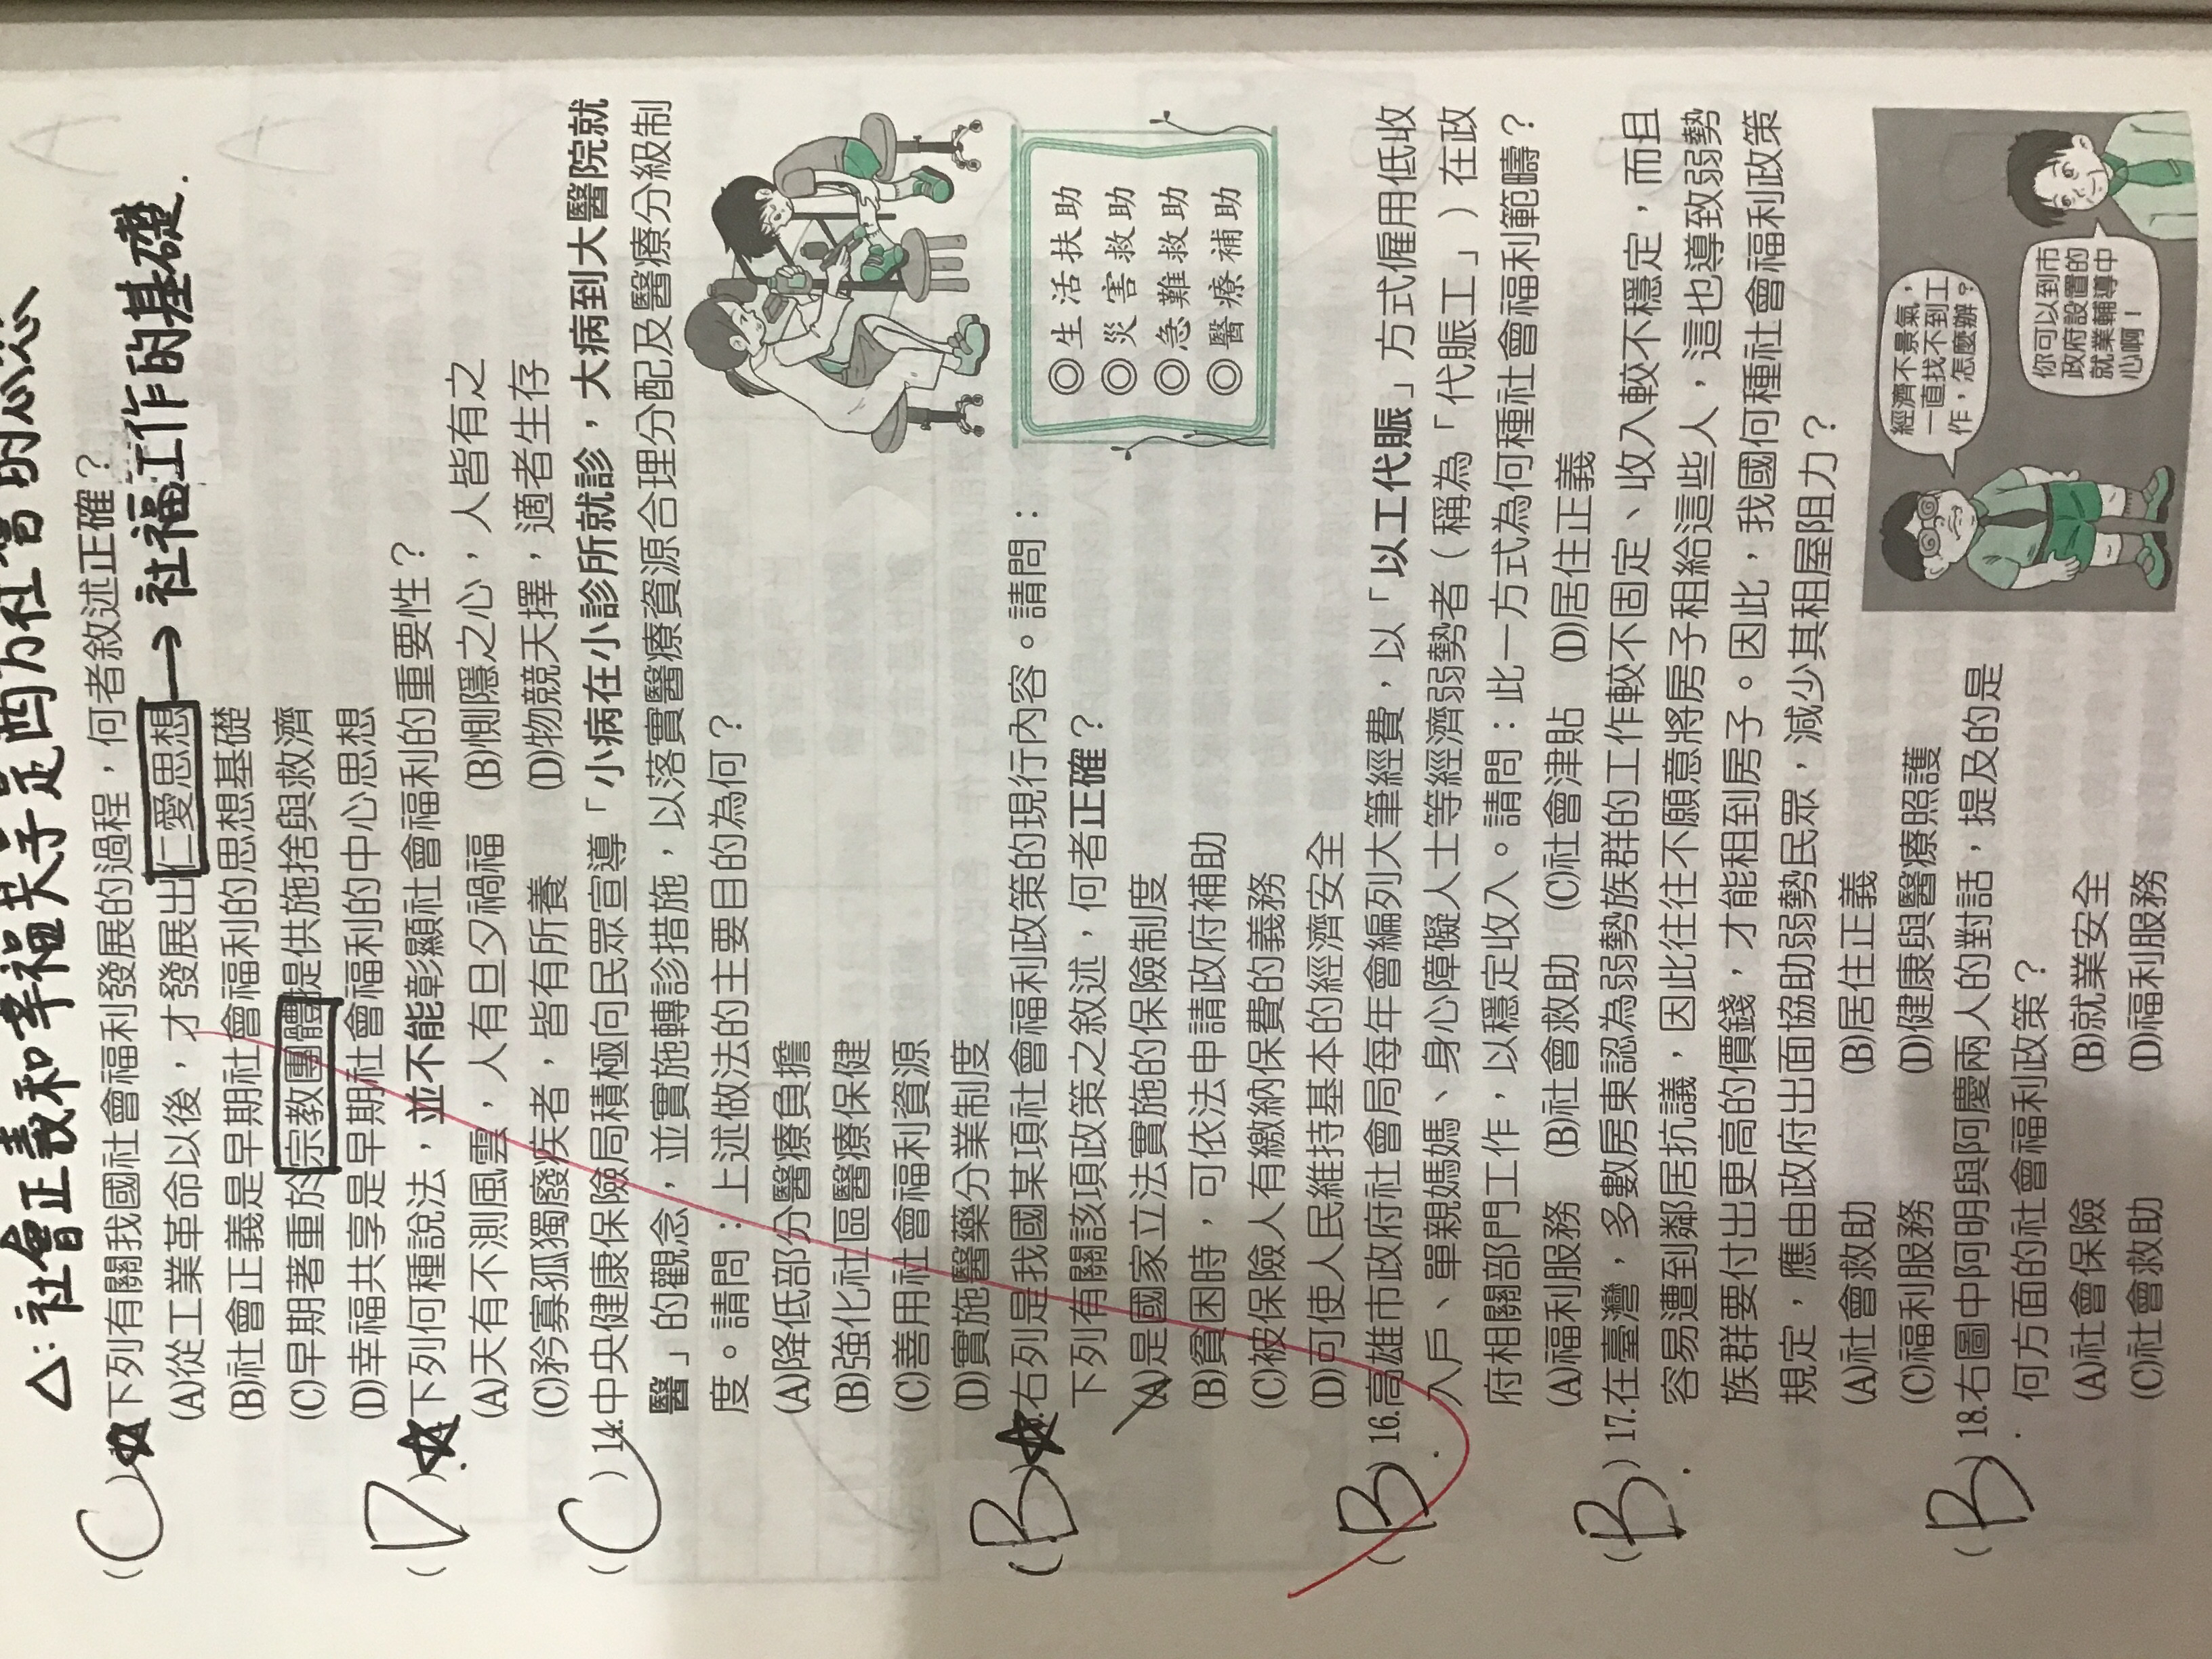 △:社會正義和幸福共享是西方社會的思想
(C)☆下列有關我國社會福利發展的過程,何者敘述正確?
(A)從工業革命以後,才發展出仁愛思想→社福工作的基礎.
(B)社會正義是早期社會福利的思想基礎
(C)早期著重於宗教團體提供施捨與救濟
(D)幸福共享是早期社會福利的中心思想
(D)☆下列何種說法,並不能彰顯社會福利的重要性?
(A)天有不測風雲,人有旦夕禍福 (B)惻隱之心,人皆有之
(C)矜寡孤獨廢疾者,皆有所養 (D)物競天擇,適者生存
(C)14.中央健康保險局積極向民眾宣導「小病在小診所就診,大病到大醫院就
醫」的觀念,並實施轉診措施,以落實醫療資源合理分配及醫療分級制
度。請問:上述做法的主要目的為何?
(A)降低部分醫療負擔
(B)強化社區醫療保健
(C)善用社會福利資源
(D)實施醫藥分業制度
(B)☆右列是我國某項社會福利政策的現行內容。請問:
下列有關該項政策之敘述,何者正確?
(A)是國家立法實施的保險制度
(B)貧困時,可依法申請政府補助
(C)被保險人有繳納保費的義務
(D)可使人民維持基本的經濟安全
◎生活扶助
◎災害救助
◎急難救助
◎醫療補助
(B)16.高雄市政府社會局每年會編列大筆經費,以「以工代賑」方式僱用低收
入戶、單親媽媽、身心障礙人士等經濟弱勢者(稱為「代賑工」)在政
府相關部門工作,以穩定收入。請問:此一方式為何種社會福利範疇?
(A)福利服務 (B)社會救助 (C)社會津貼 (D)居住正義
(B)17.在臺灣,多數房東認為弱勢族群的工作較不固定、收入較不穩定,而且
容易遭到鄰居抗議,因此往往不願意將房子租給這些人,這也導致弱勢
族群要付出更高的價錢,才能租到房子。因此,我國何種社會福利政策
規定,應由政府出面協助弱勢民眾,減少其租屋阻力?
(A)社會救助 (B)居住正義
(C)福利服務 (D)健康與醫療照護
(B)18.右圖中阿明與阿慶兩人的對話,提及的是
何方面的社會福利政策?
(A)社會保險 (B)就業安全
(C)社會救助 (D)福利服務
經濟不景氣,
一直找不到工
作,怎麼辦?
你可以到市
政府設置的
就業輔導中
心啊!